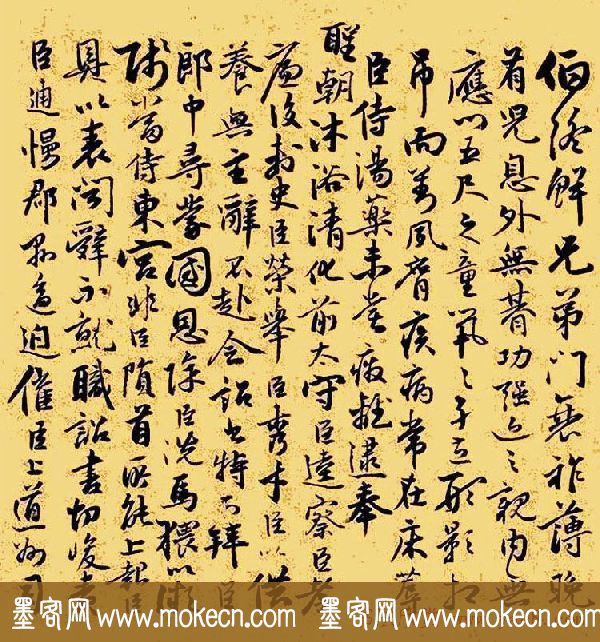 伯終鮮兄弟門衰祚薄晚
有兒息外無朞功強近之親內無
應門五尺之童煢々孑立形影相
吊而劉夙嬰疾病常在床蓐
臣侍湯藥未嘗廢離逮奉
聖朝沐浴清化前太守臣逵察臣孝
廉後刺史臣榮舉臣秀才臣以供
養無主辭不赴令詔書特下拜臣
郎中尋蒙國恩除臣洗馬猥以微
賤當侍東宮非臣隕首所能上報
具以表聞辭不就職詔書切峻責
臣逋慢郡縣逼迫催臣上道州司
墨客网 www.mokecn.com 墨客网 www.mokecn.com